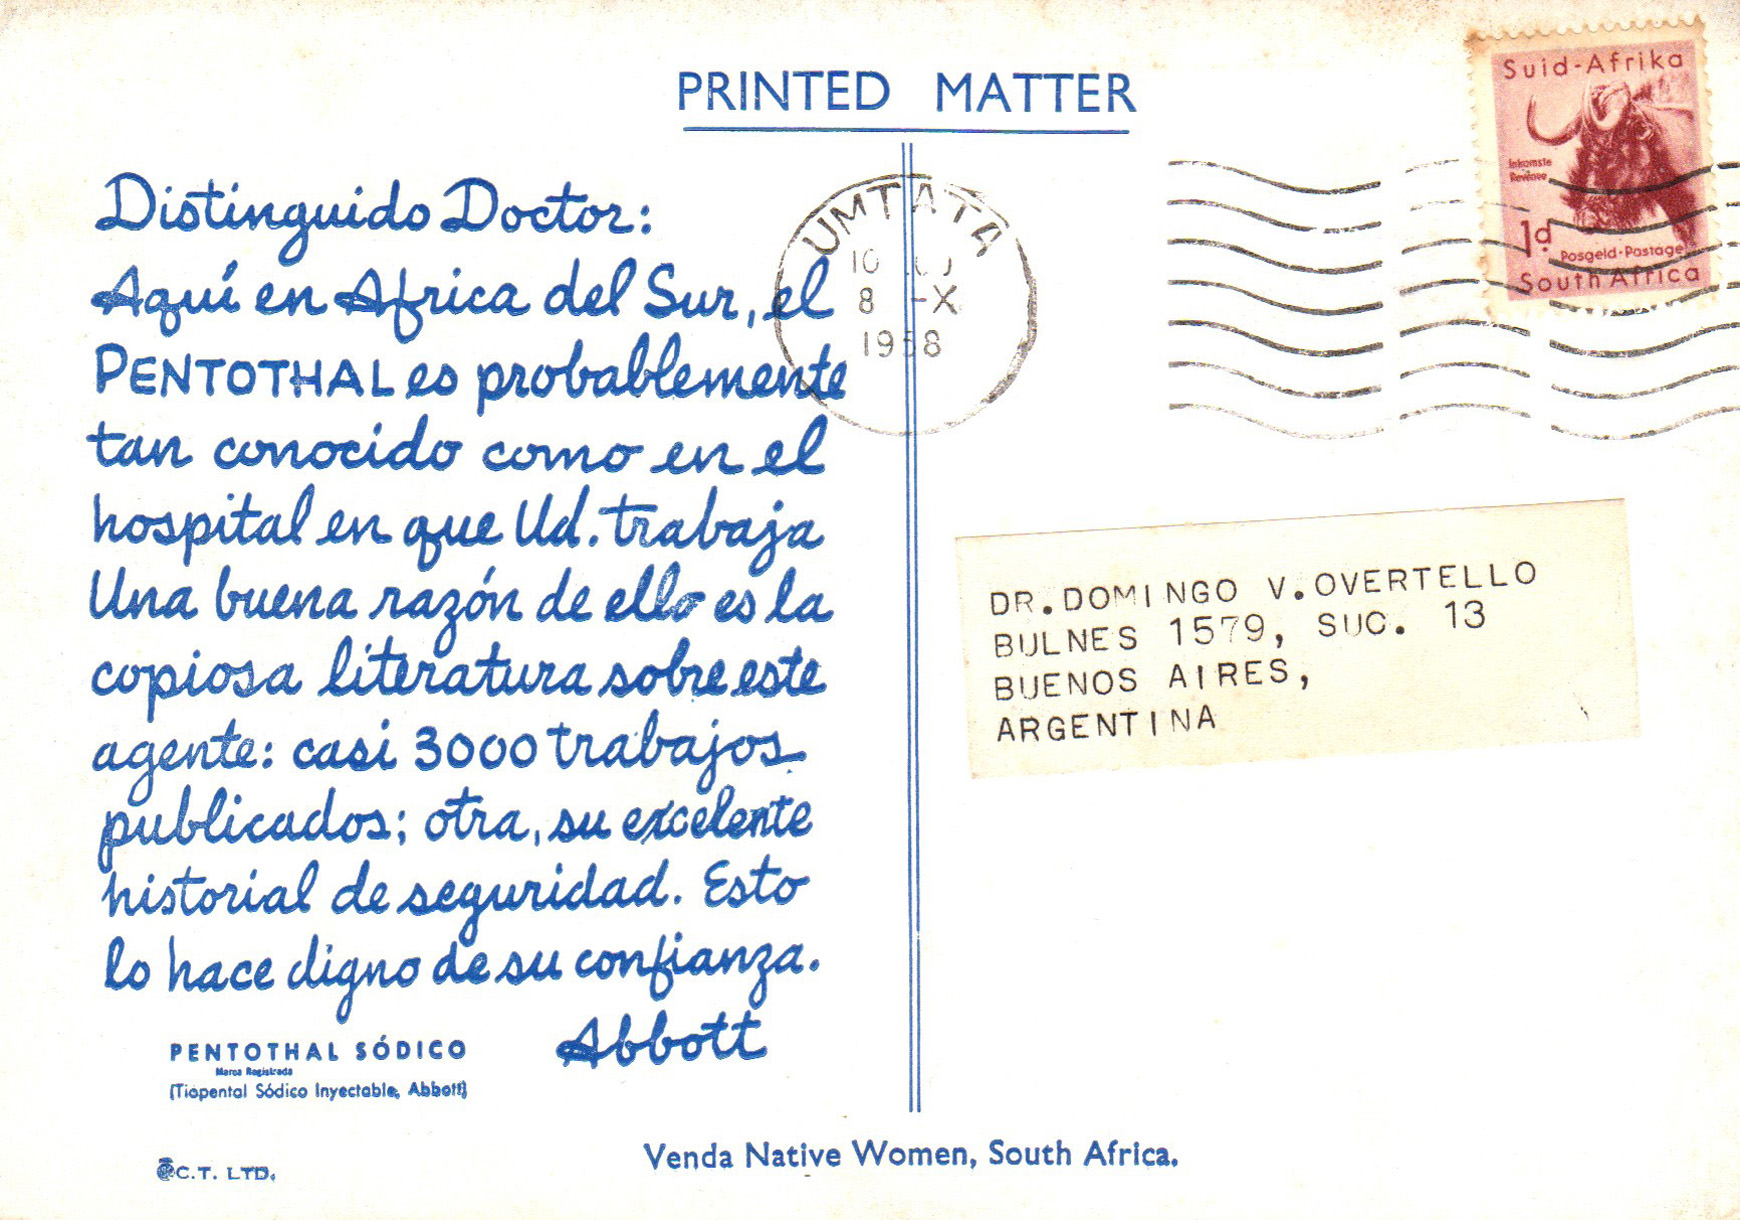 PRINTED MATTER
Distinguido Doctor:
Aquí en Africa del Sur, el
PENTOTHAL es probablemente
tan conocido como en el
hospital en que Ud. trabaja
Una buena razón de ello es la
copiosa literatura sobre este
agente: casi 3000 trabajos
publicados; otra, su excelente
historial de seguridad. Esto
lo hace digno de su confianza.
Abbott
PENTOTHAL SÓDICO
Marca Registrada
(Tiopental Sódico Inyectable, Abbott)
C.T. LTD.
Venda Native Women, South Africa.
UMTATA
10
8 -X
1958
Suid-Afrika
Inkomste
Revenue
1d
Posgeld-Postage
South Africa
DR.DOMINGO V.OVERTELLO
BULNES 1579, SUC. 13
BUENOS AIRES,
ARGENTINA